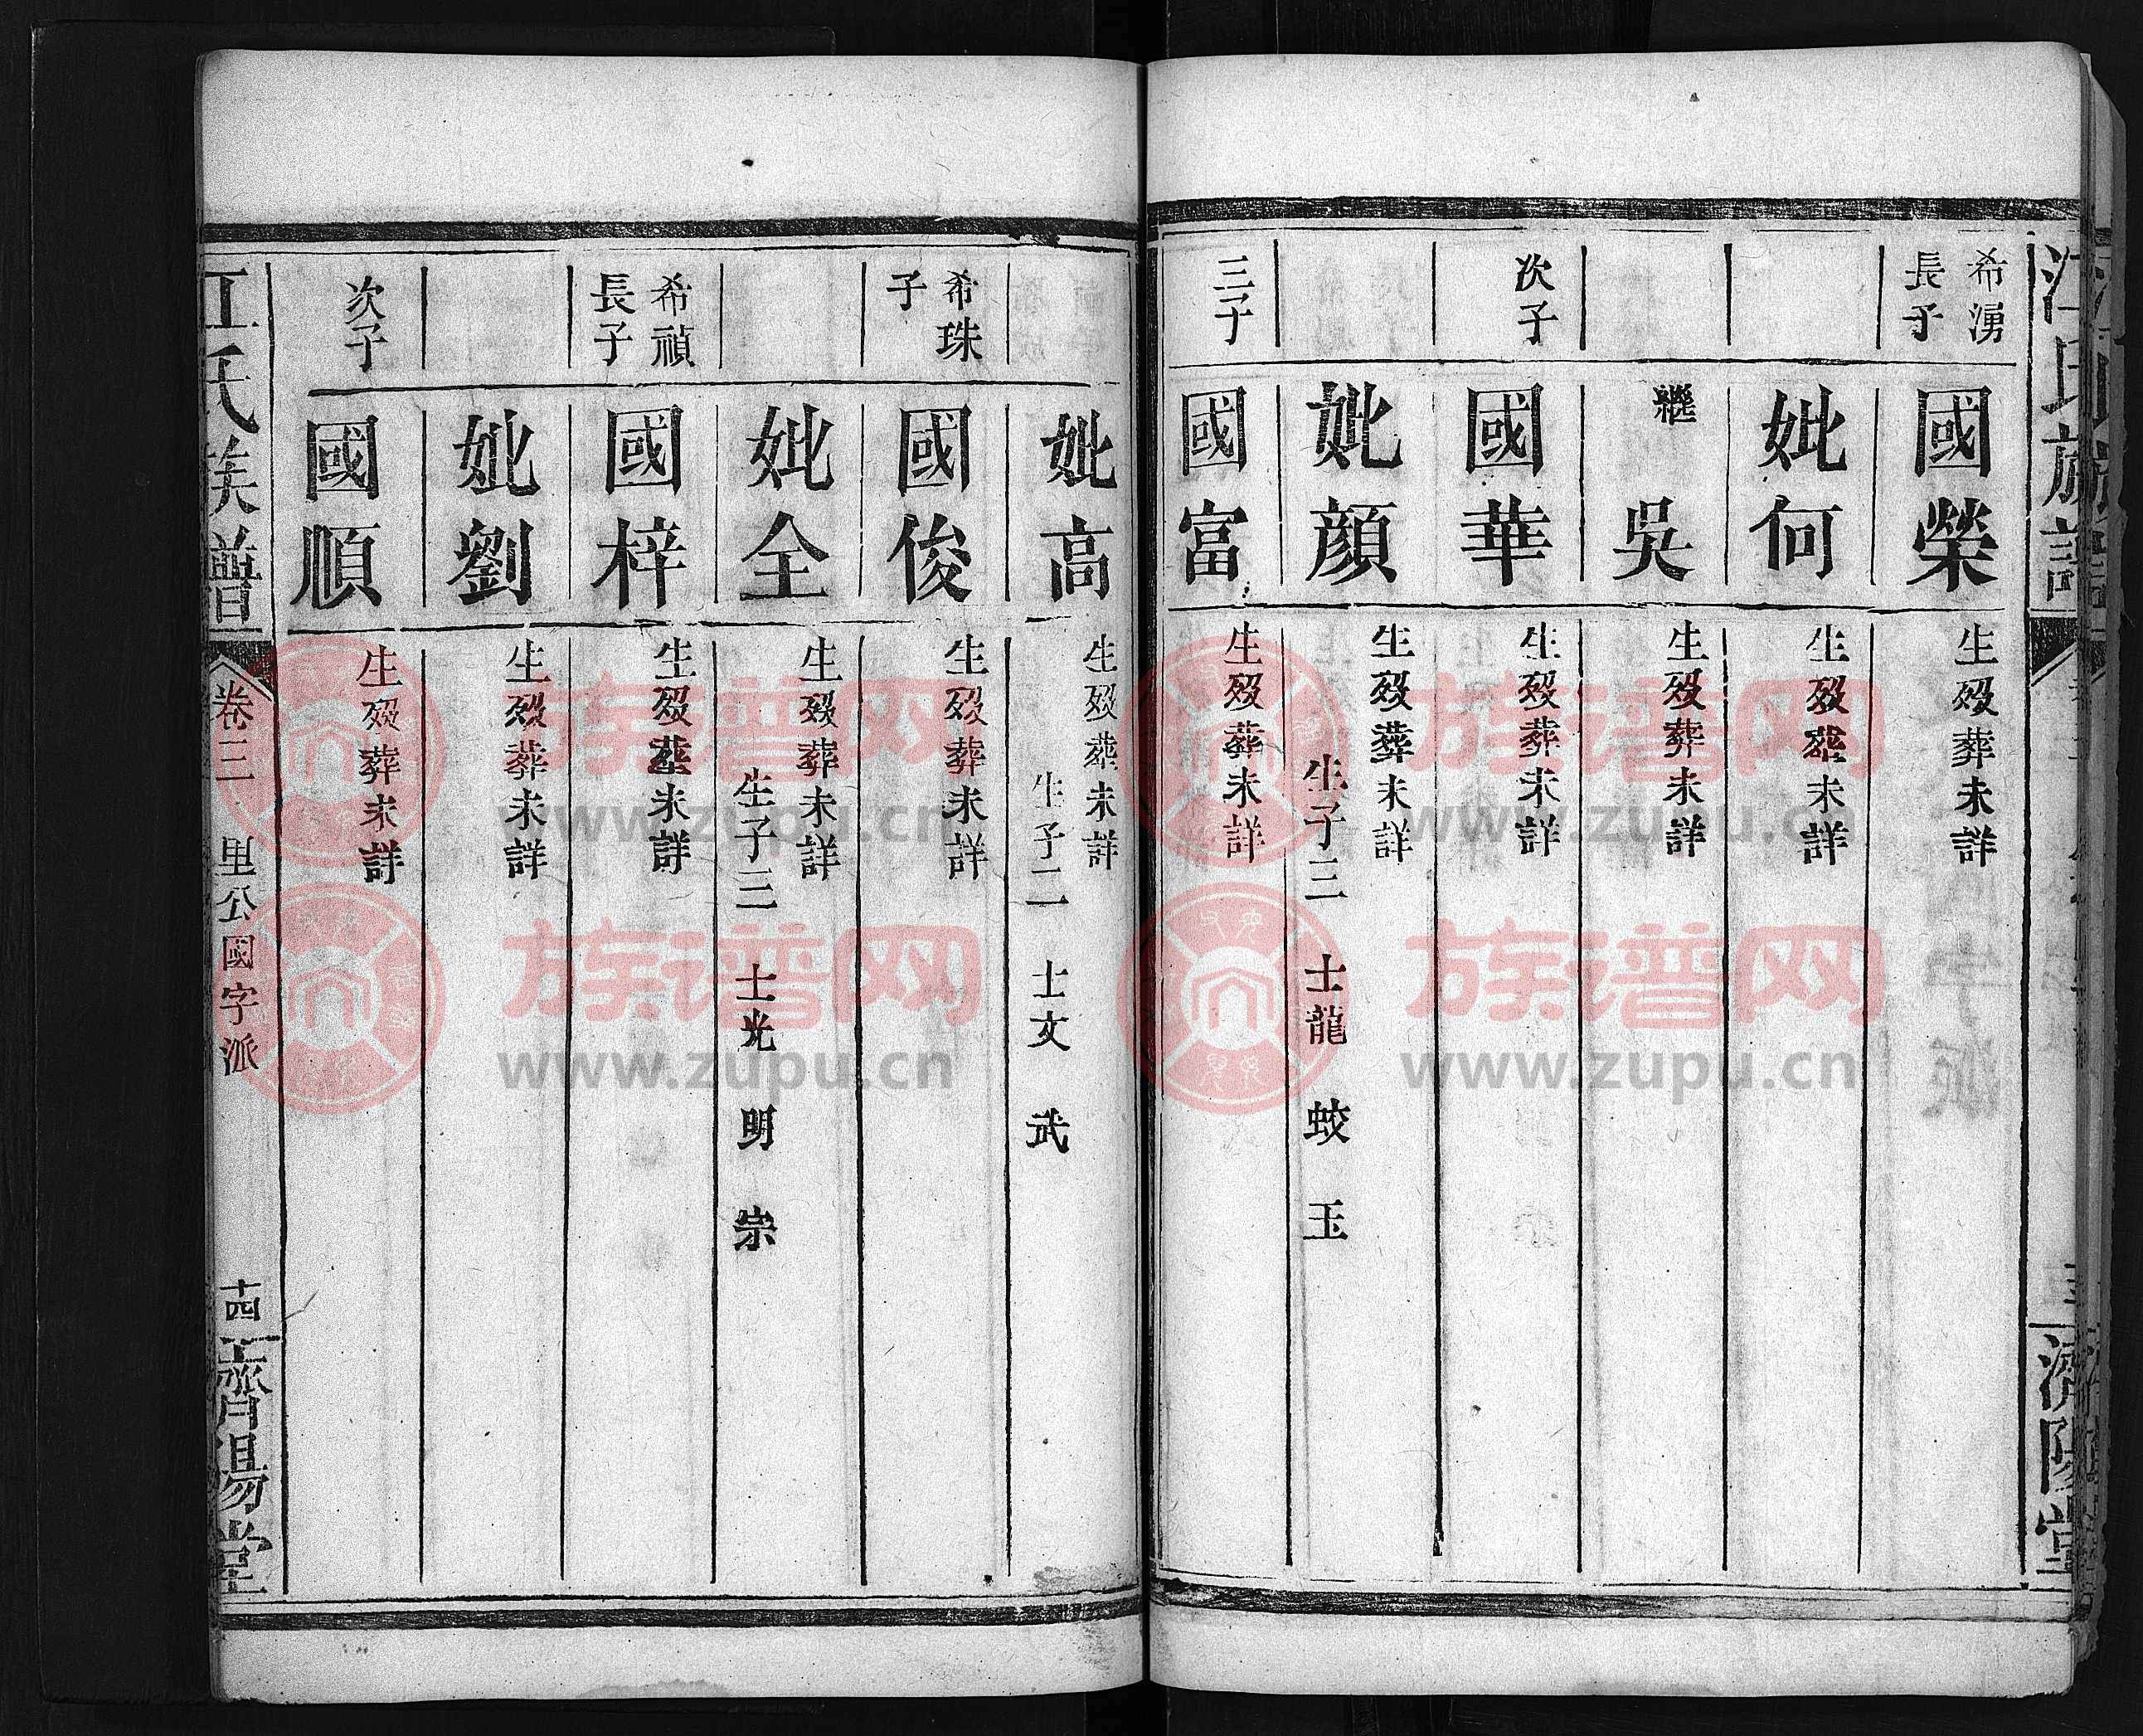 江氏族譜
濟陽堂
希湧長子
國榮
生歿葬未詳
妣何
生歿葬未詳
繼吳
生歿葬未詳
次子
國華
生歿葬未詳
妣顏
生歿葬未詳
生子三 士龍 蛟 玉
三子
國富
生歿葬未詳
妣高
生歿葬未詳
生子二 士文 武
希珠子
國俊
生歿葬未詳
妣全
生歿葬未詳
生子三 士光 明 宗
希禎長子
國梓
生歿葬未詳
妣劉
生歿葬未詳
次子
國順
生歿葬未詳
江氏族譜
卷三 里公國字派
十四
濟陽堂
族谱网
www.zupu.cn
族谱网
www.zupu.cn
族谱网
www.zupu.cn
族谱网
www.zupu.cn